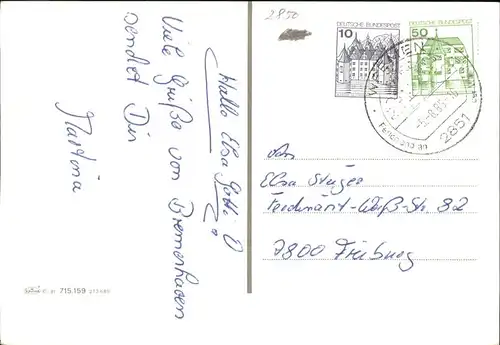 Hallo Elsa
Viele Grüße von Bremerhaven
sendet Dir
Martina
2850
DEUTSCHE BUNDESPOST
10
DEUTSCHE BUNDESPOST
50
2851
An
Elsa
Ferdinand-Weiß-Str. 82
7800 Freiburg
715.159